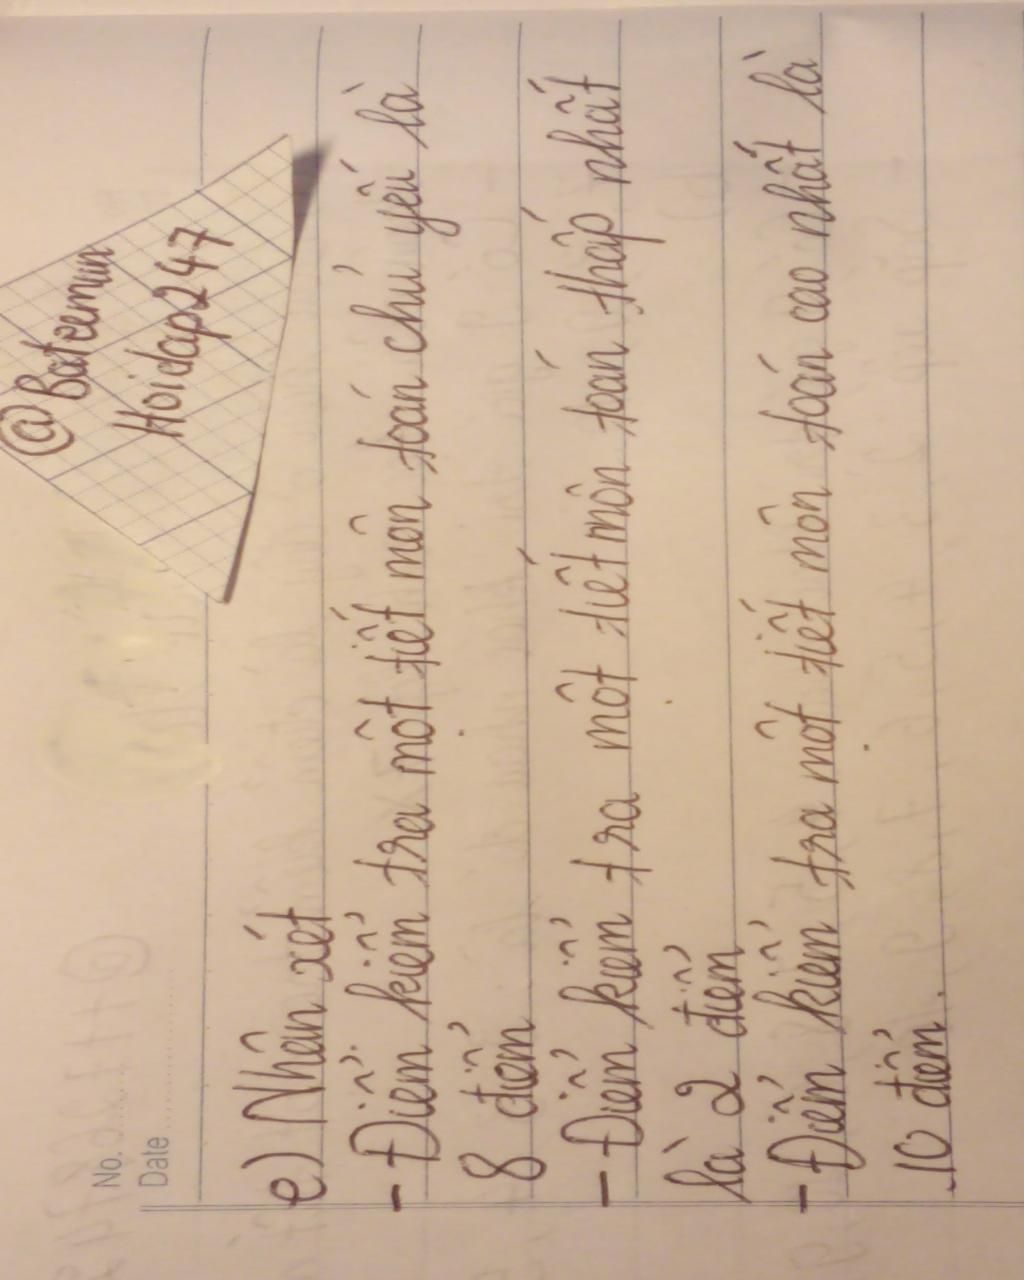 No.
Date
@Bateemun
Hoidap247
e) Nhận xét
- Điểm kiểm tra một tiết môn toán chủ yếu là
8 điểm
- Điểm kiểm tra một tiết môn toán thấp nhất
là 2 điểm
- Điểm kiểm tra một tiết môn toán cao nhất là
10 điểm.